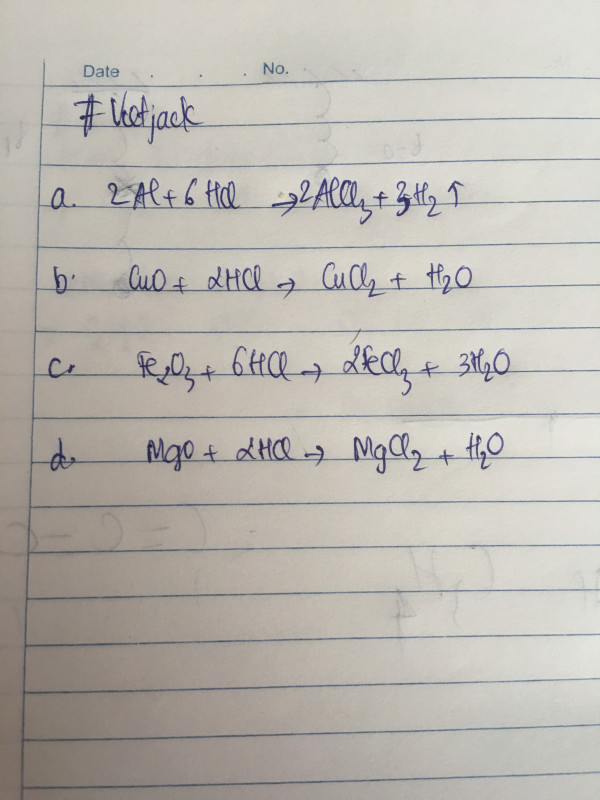 Date . . . No.
# Vietjack
a. 2Al + 6HCl → 2AlCl₃ + 3H₂ ↑
b. CuO + 2HCl → CuCl₂ + H₂O
c. Fe₂O₃ + 6HCl → 2FeCl₃ + 3H₂O
d. MgO + 2HCl → MgCl₂ + H₂O